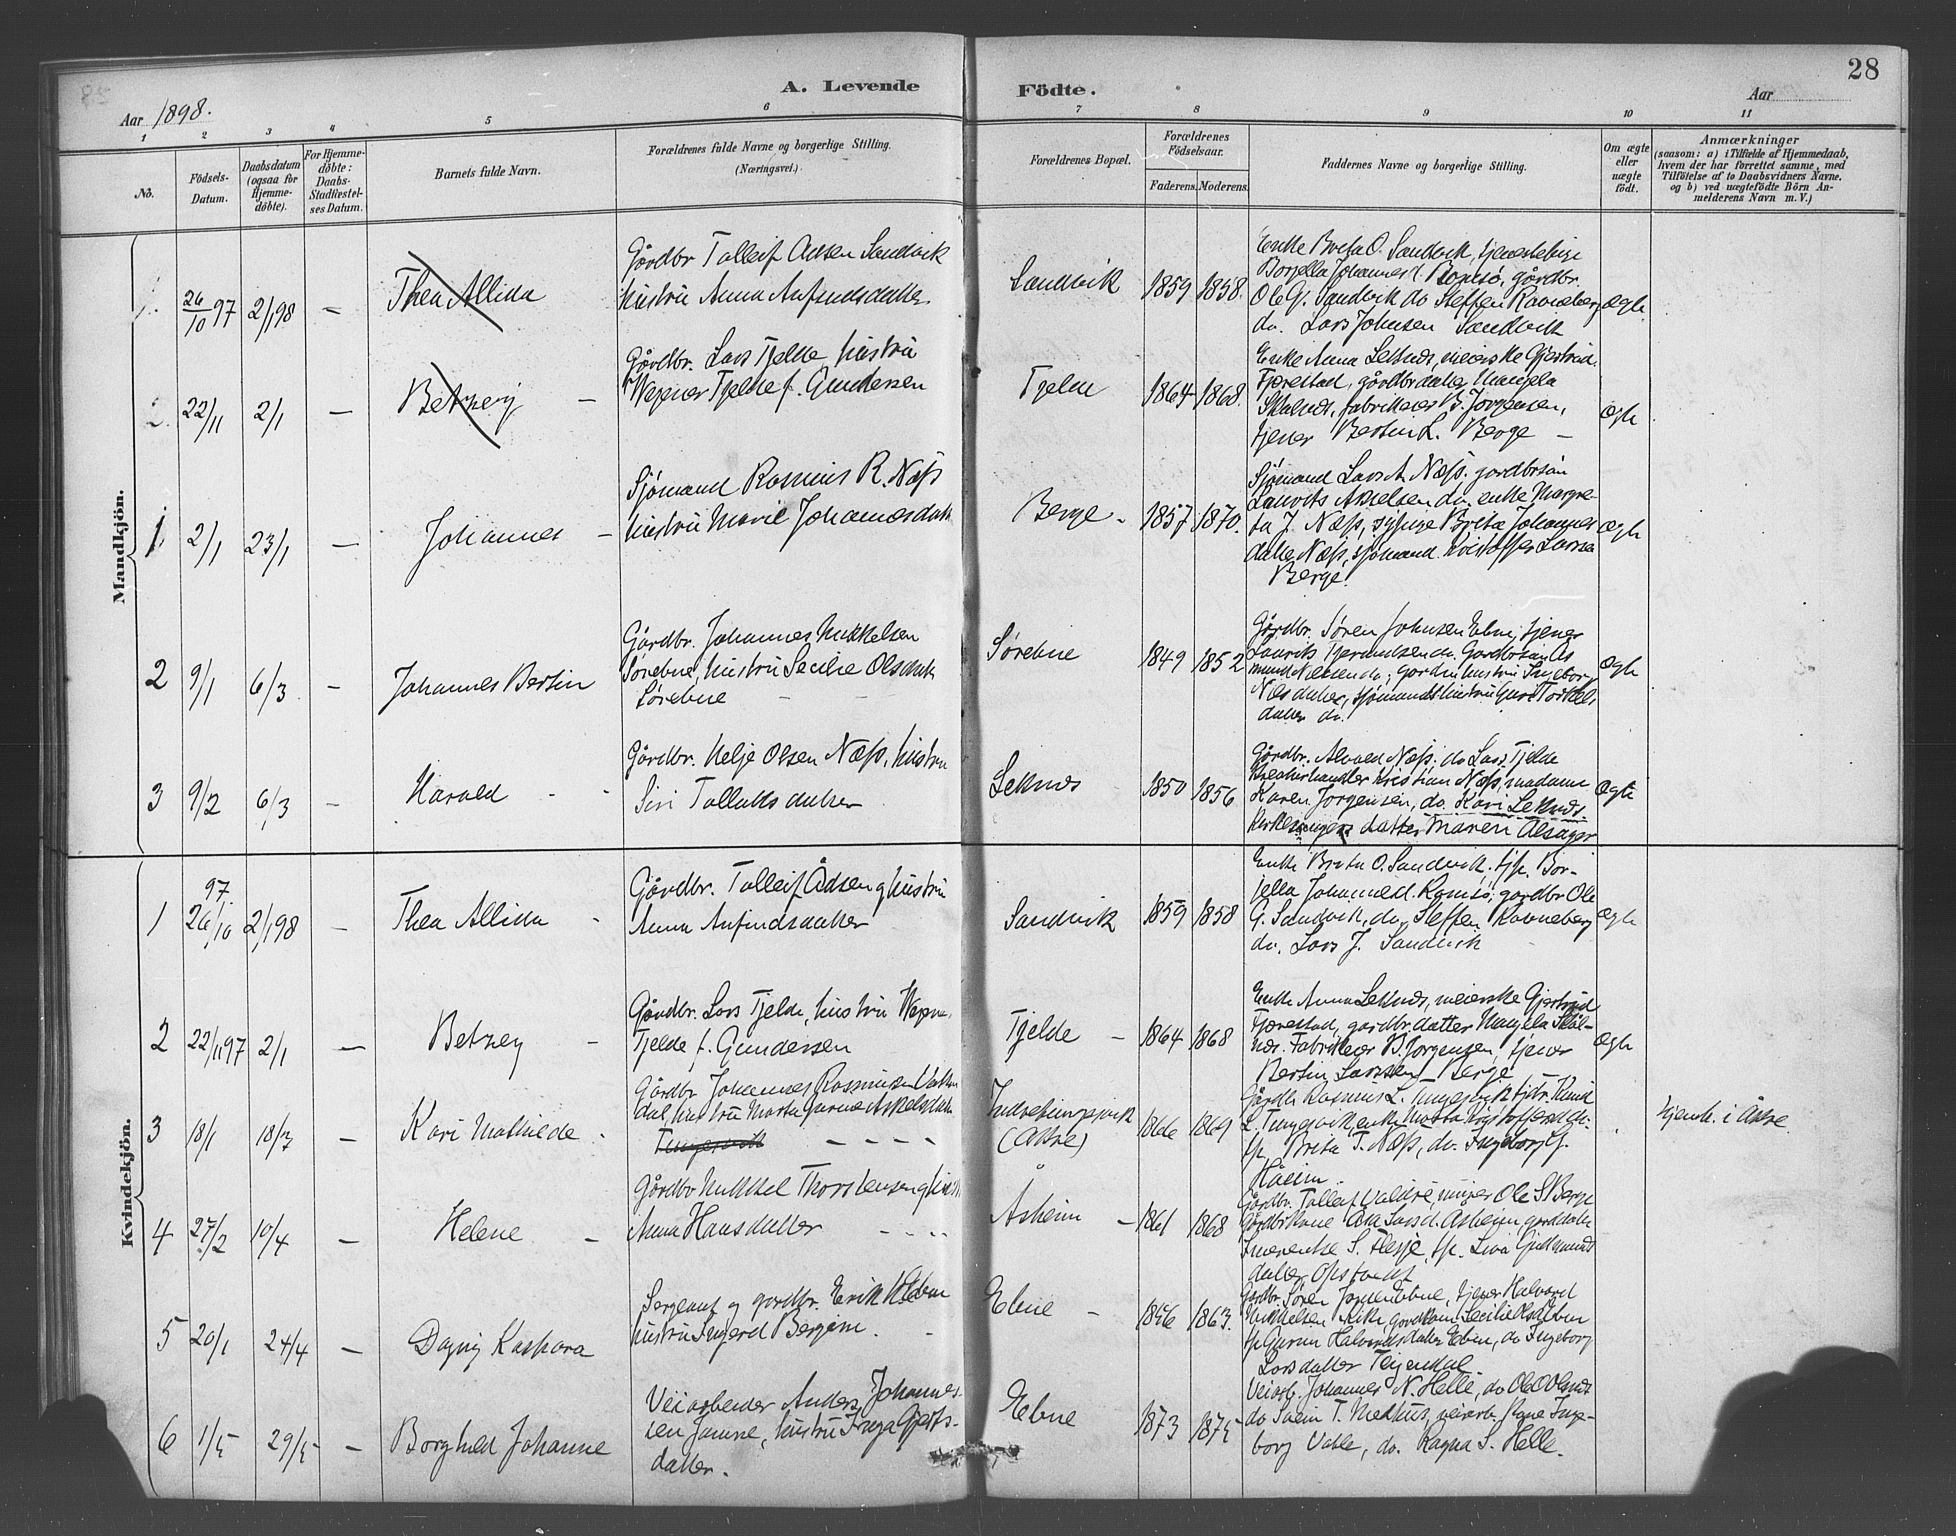 28
A. Levende Födte.
Aar 1898.
Aar
1 2 3 4 5 6 7 8 9 10 11
No.
Födsels-Datum.
Daabsdatum (ogsaa for Hjemme-döbte).
For Hjemme-döbte: Daabs-Stadfæstel-ses Datum.
Barnets fulde Navn.
Forældrenes fulde Navne og borgerlige Stilling.
(Næringsvei.)
Forældrenes Bopæl.
Forældrenes Födselsaar.
Faderens. Moderens.
Faddernes Navne og borgerlige Stilling.
Om ægte eller uægte födt.
Anmærkninger
(saasom: a) i Tilfælde af Hjemmedaab,
hvem der har forrettet samme, med
Tilföielse af to Daabsvidners Navne.
og b) ved uægtefödte Börn An-
melderens Navn m. V.)
Mandkjön.
1. 26/10 97 2/1 98 – Thea Allida
Gårdbr Tolleif Adsen Sandvik
hustru Anna Anfindsdatter
Sandvik 1859 1858.
Enke Brita O. Sandvik, tjenestepige
Borjella Johannesd. Romsö, gårdbr.
Ole G. Sandvik do Steffen Ravneberg
do. Lars Johnsen Sandvik
ægte
2. 22/11 2/1 – Betzey –
Gårdbr. Lars Tjelde, hustru
Tjelde f. Gundersen
Tjelde 1864 1868.
Enke Anna Leknes, meierske Gjertrud
Fjærestad, gårdbrdatter Mangela
fabrikeier B. Jorgensen,
tjener Bertin L. Berge –
ægte
1, 2/1 23/1 – Johannes –
Sjömand Rasmus R. Næss
hustru Marie Johannesdatter
Berge – 1857 1870.
Sjömand Lars A Næss. gardbrsön
Laurits Askelsen do, enke Margre-
ta J. Næss, sypige Brita Johannes
datter Næss, sjömand Kristoffer Larsen
Berge.
ægte
2 9/1 6/3 – Johannes Bertin
Gårdbr. Johannes Mikkelsen
Sörebne, hustru Secilie Olsdatter
Sörebne –
Sörebne 1849 1852
Gårdbr. Sören Johnsen Ebne, tjener
Laurits do. Gårdbrsön As
mund do; hustru Ingeborg
datter, sjömandshustru Guri Torkels
datter do.
ægte
3 9/2 6/3 – Harald
Gårdbr. Helje Olsen Næss, hustru
Siri Tollaksdatter
Leknes 1850 1856
Gårdbr. Næss. do Lars Tjelde
Kreaturhandler Kristian Næss, madame
Karen Jorgensen, do. Kari Leknes
Kirkesangers datter Maren Alsager
ægte
Kvindekjön.
1 97. 26/10 2/1 98 – Thea Allida –
Gårdbr. Tolleif Ådsen g hustru
Anna Anfindsdatter
Sandvik 1859 1858
Enke Brita O. Sandvik, tjp. Bor-
jella Johannesd. Romsö, gardbr Ole
G. Sandvik, do, Steffen Ravneberg
do. Lars J. Sandvik
ægte
2 22/11 97 2/1 – Betzey –
Gårdbr. Lars Tjelde, hustru
Tjelde f. Gundersen
Tjelde – 1864 1868
Enke Anna Leknes, meierske Gjertrud
Fjærestad, gardbr.datter Mangela Skål-
nes. Fabrikeier B. Jorgensen, tjener
Bertin Larssen Berge
ægte
3 18/1 18/3 – Kari Mathilde –
Gårdbr Johannes Rasmusen
dal, hustru Marta Askelsdatter
Tungesvik – – – –
Indretungesvik
(Åkre) 1866 1869
Gårdbr Rasmus L. Tungesvik, Knud
L. Tungesvik, enke Marta
tjp. Brita T. Næss, do. Ingeborg J.
Håeim.
Hjemd. i Åkre.
4 27/2 10/4 – Helene –
Gårdbr Mikkel Thorstensen g hustru
Anna Hansdatter – – – –
Åsheim – 1861 1868
Gårdbr. Tolleif Valdre, Ole S Berge
Gårdbrkone Åsa Larsd. Åsheim, garddatter
S. Flesje, tjp. Siva Gudmunds
datter Opstveit
5 20/1 24/4 – Dagny Kaspara
Sergeant g gardbr. Erik Ebne
hustru Ingerd Bergene. –
Ebne – 1856 1863.
Gårdbr. Sören Ebne, tjener Halvard
Mikkelsen Secilie Ebne
tjp Gurun Halvardsdatter Ebne, do Ingeborg
Larsdatter Teigendal
6 1/5 29/5 – Borghild Johanne
Veiarbeider Anders Johannes-
sen hustru Inga Gjerts-
datter.
Ebne 1873 1875
Veiarb. Johannes N. Helle, do Ole
do Svein T. Medhus, veiarb. Inge-
borg do. Ragna S. Helle.